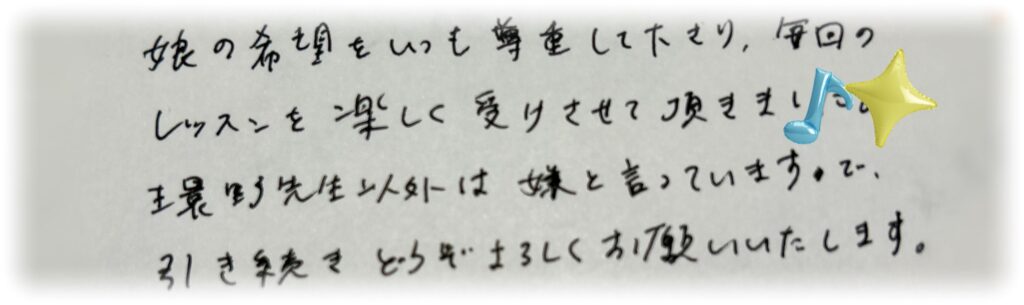 娘の希望をいつも尊重して下さり、毎回の
レッスンを楽しく受けさせて頂きました。
野先生以外は嫌と言っていますので、
引き続きどうぞよろしくお願いいたします。